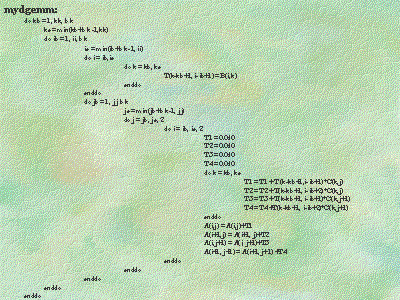 mydgemm:
do kb = 1, kk, bk
ke = min(kb+bk-1,kk)
do ib = 1, ii, bk
ie = min(ib+bk-1, ii)
do i = ib, ie
do k = kb, ke
T(k-kb+1, i-ib+1) = B(i,k)
enddo
enddo
do jb = 1, jj, bk
je = min(jb+bk-1, jj)
do j = jb, je, 2
do i = ib, ie, 2
T1 = 0.0d0
T2 = 0.0d0
T3 = 0.0d0
T4 = 0.0d0
do k = kb, ke
T1 = T1 + T(k-kb+1, i-ib+1)*C(k,j)
T2 = T2 + T(k-kb+1, i-ib+2)*C(k,j)
T3 = T3 + T(k-kb+1, i-ib+1)*C(k,j+1)
T4 = T4 + T(k-kb+1, i-ib+2)*C(k,j+1)
enddo
A(i,j) = A(i,j)+T1
A(i+1,j) = A(i+1, j)+T2
A(i,j+1) = A(i,j+1)+T3
A(i+1, j+1) = A(i+1, j+1) +T4
enddo
enddo
enddo
enddo
enddo